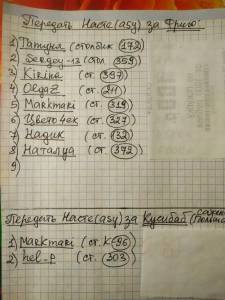 Передать Насте (asy) за Фриго:
1) Патуня (столбик 172)
2) Sergey-13 (стол 359)
3) Kirina (ст. 397)
4) OlgaZ (ст. 211)
5) Markmari (ст. 319)
6) Цвето4ек (ст. 327)
7) Надик (ст. 32)
8) Наталуа (ст. 372)
9)
Передать Насте (asy) за Кусибаб
1) Markmari (ст. К-96)
2) hel-p (ст. 303)